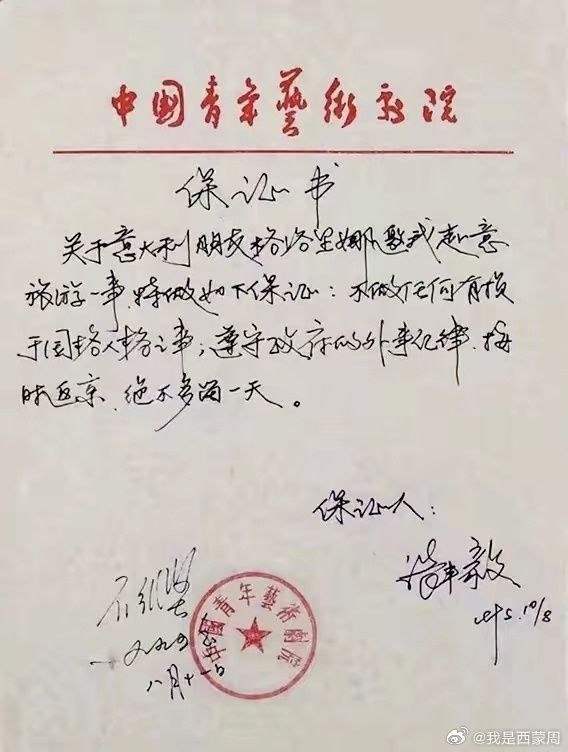 中国青年藝術剧院
保证书
关于意大利朋友格洛里娜邀我赴意
旅游一事,特做如下保证:不做任何有损
于国格人格之事;遵守政府的外事纪律,按
时返京,绝不多留一天。
保证人:
10/8
一九九四
八月十一日
中國青年藝術劇院
@我是西蒙周